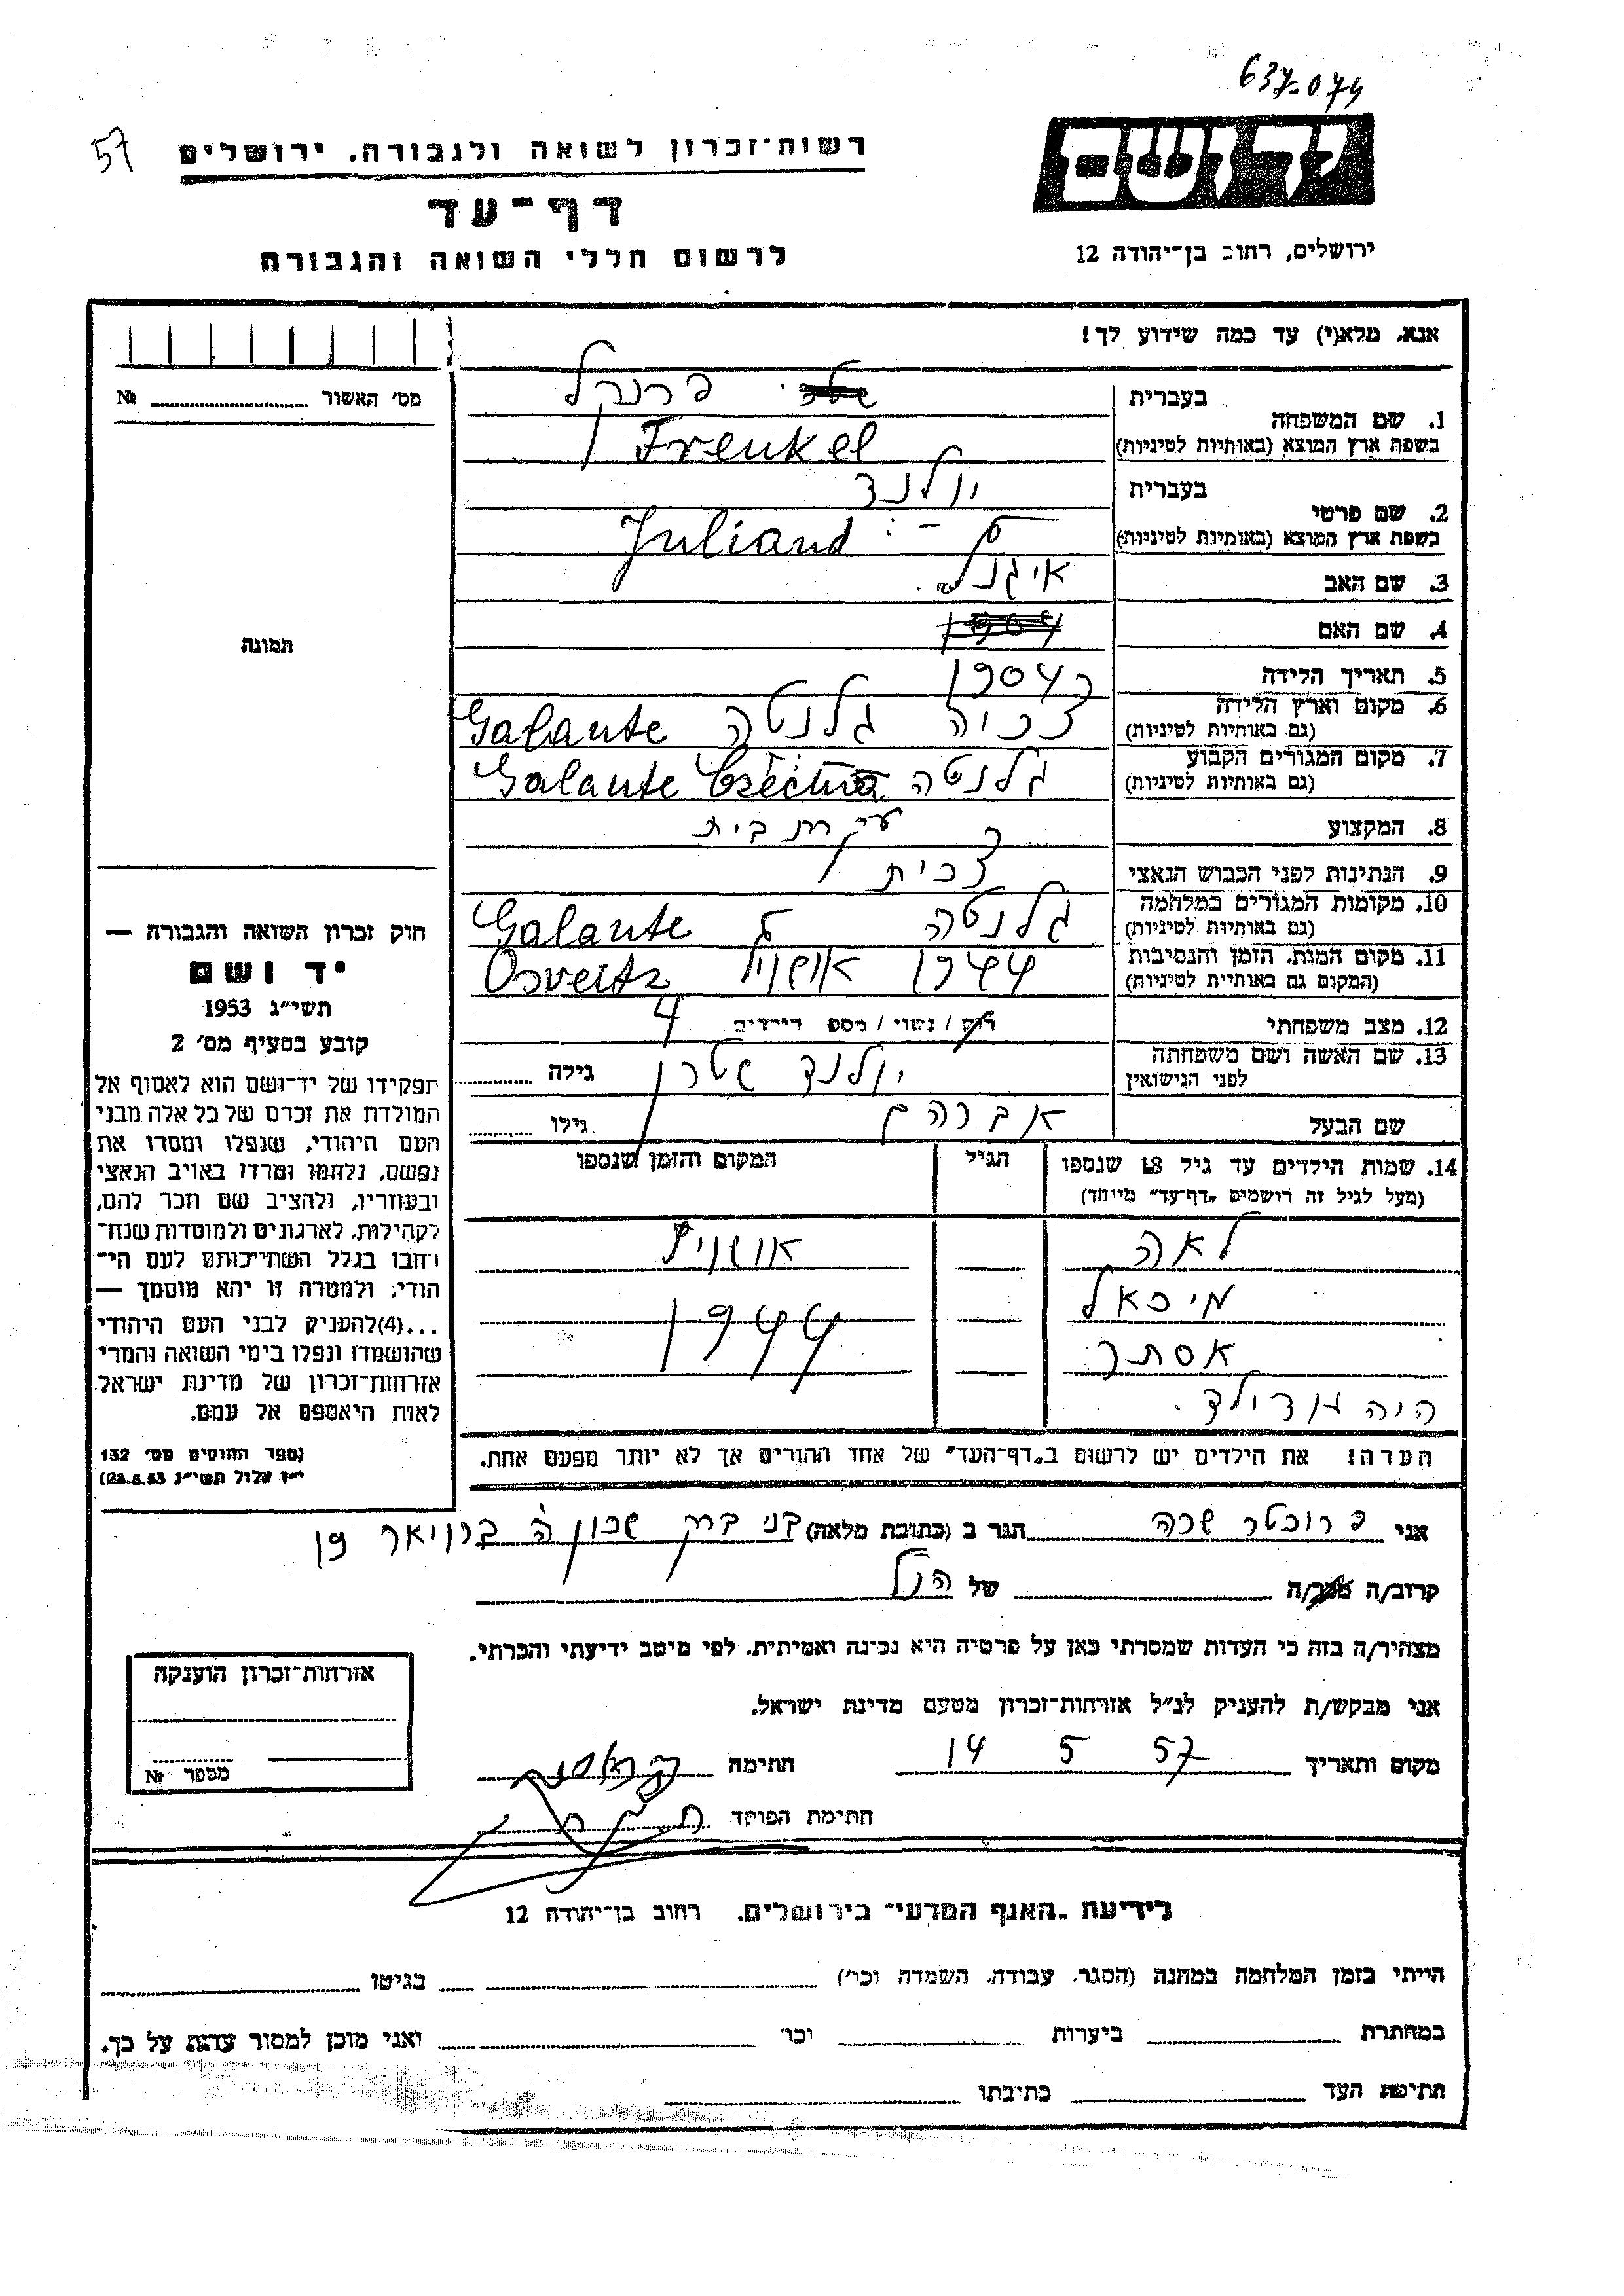 637.074
57
רשות־זכרון לשואה ולגבורה, ירושלים
דף־עד
לרשום חללי השואה והגבורה
יד ושם
ירושלים, רחוב בן־יהודה 12
אנא, מלא(י) עד כמה שידוע לך!
מס' האשור № 
1. שם המשפחה
בעברית פרנקל
בשפת ארץ המוצא (באותיות לטיניות) Frenkel
2. שם פרטי
בעברית יולנד
בשפת ארץ המוצא (באותיות לטיניות) Juliand
3. שם האב
4. שם האם
5. תאריך הלידה 1904
6. מקום וארץ הלידה
(גם באותיות לטיניות) צכיה גלנטה Galante
7. מקום המגורים הקבוע
(גם באותיות לטיניות) גלנטה Galante
8. המקצוע עקרת בית
9. הנתינות לפני הכבוש הנאצי צכית
10. מקומות המגורים במלחמה
(גם באותיות לטיניות) גלנטה Galante
11. מקום המות, הזמן והנסיבות
(המקום גם באותיות לטיניות) 1944 אושויץ Osveitz
12. מצב משפחתי רוק / נשוי / מספ' הילדים 4
13. שם האשה ושם משפחתה
לפני הנישואין יולנד שטרן גילה
שם הבעל אברהם גילו
14. שמות הילדים עד גיל 18 שנספו
(מעל לגיל זה רושמים "דף־עד" מיוחד)
הגיל
המקום והזמן שנספו
לאה אושויץ
מיכאל 1944
אסתר
היה
הערה! את הילדים יש לרשום ב"דף־העד" של אחד ההורים אך לא יותר מפעם אחת.
תמונה
חוק זכרון השואה והגבורה —
יד ושם
תשי"ג 1953
קובע בסעיף מס' 2
תפקידו של יד־ושם הוא לאסוף אל
המולדת את זכרם של כל אלה מבני
העם היהודי, שנפלו ומסרו את
נפשם, נלחמו ומרדו באויב הנאצי
ובעוזריו, ולהציב שם וזכר להם,
לקהילות, לארגונים ולמוסדות שנח־
רבו בגלל השתייכותם לעם הי־
הודי, ולמטרה זו יהא מוסמך —
...(4) להעניק לבני העם היהודי
שהושמדו ונפלו בימי השואה והמרי
אזרחות־זכרון של מדינת ישראל
לאות היאספם אל עמם.
(ספר החוקים מס' 132
י"ז אלול תשי"ג 28.8.53)
אני פרוכטר שרה הגר ב (כתובת מלאה) בני ברק שכון ה ברויאר 19
קרוב/ה מכר/ה של הנ"ל
מצהיר/ה בזה כי העדות שמסרתי כאן על פרטיה היא נכונה ואמיתית, לפי מיטב ידיעתי והכרתי.
אני מבקש/ת להעניק לנ"ל אזרחות־זכרון מטעם מדינת ישראל.
מקום ותאריך 14 5 57 חתימה
חתימת הפוקד
אזרחות־זכרון הוענקה
מספר №
לידיעת "האגף המדעי" בירושלים, רחוב בן־יהודה 12
הייתי בזמן המלחמה במחנה (הסגר, עבודה, השמדה וכו') בגיטו
במחתרת ביערות וכו' ואני מוכן למסור עדות על כך.
חתימת העד כתיבתו